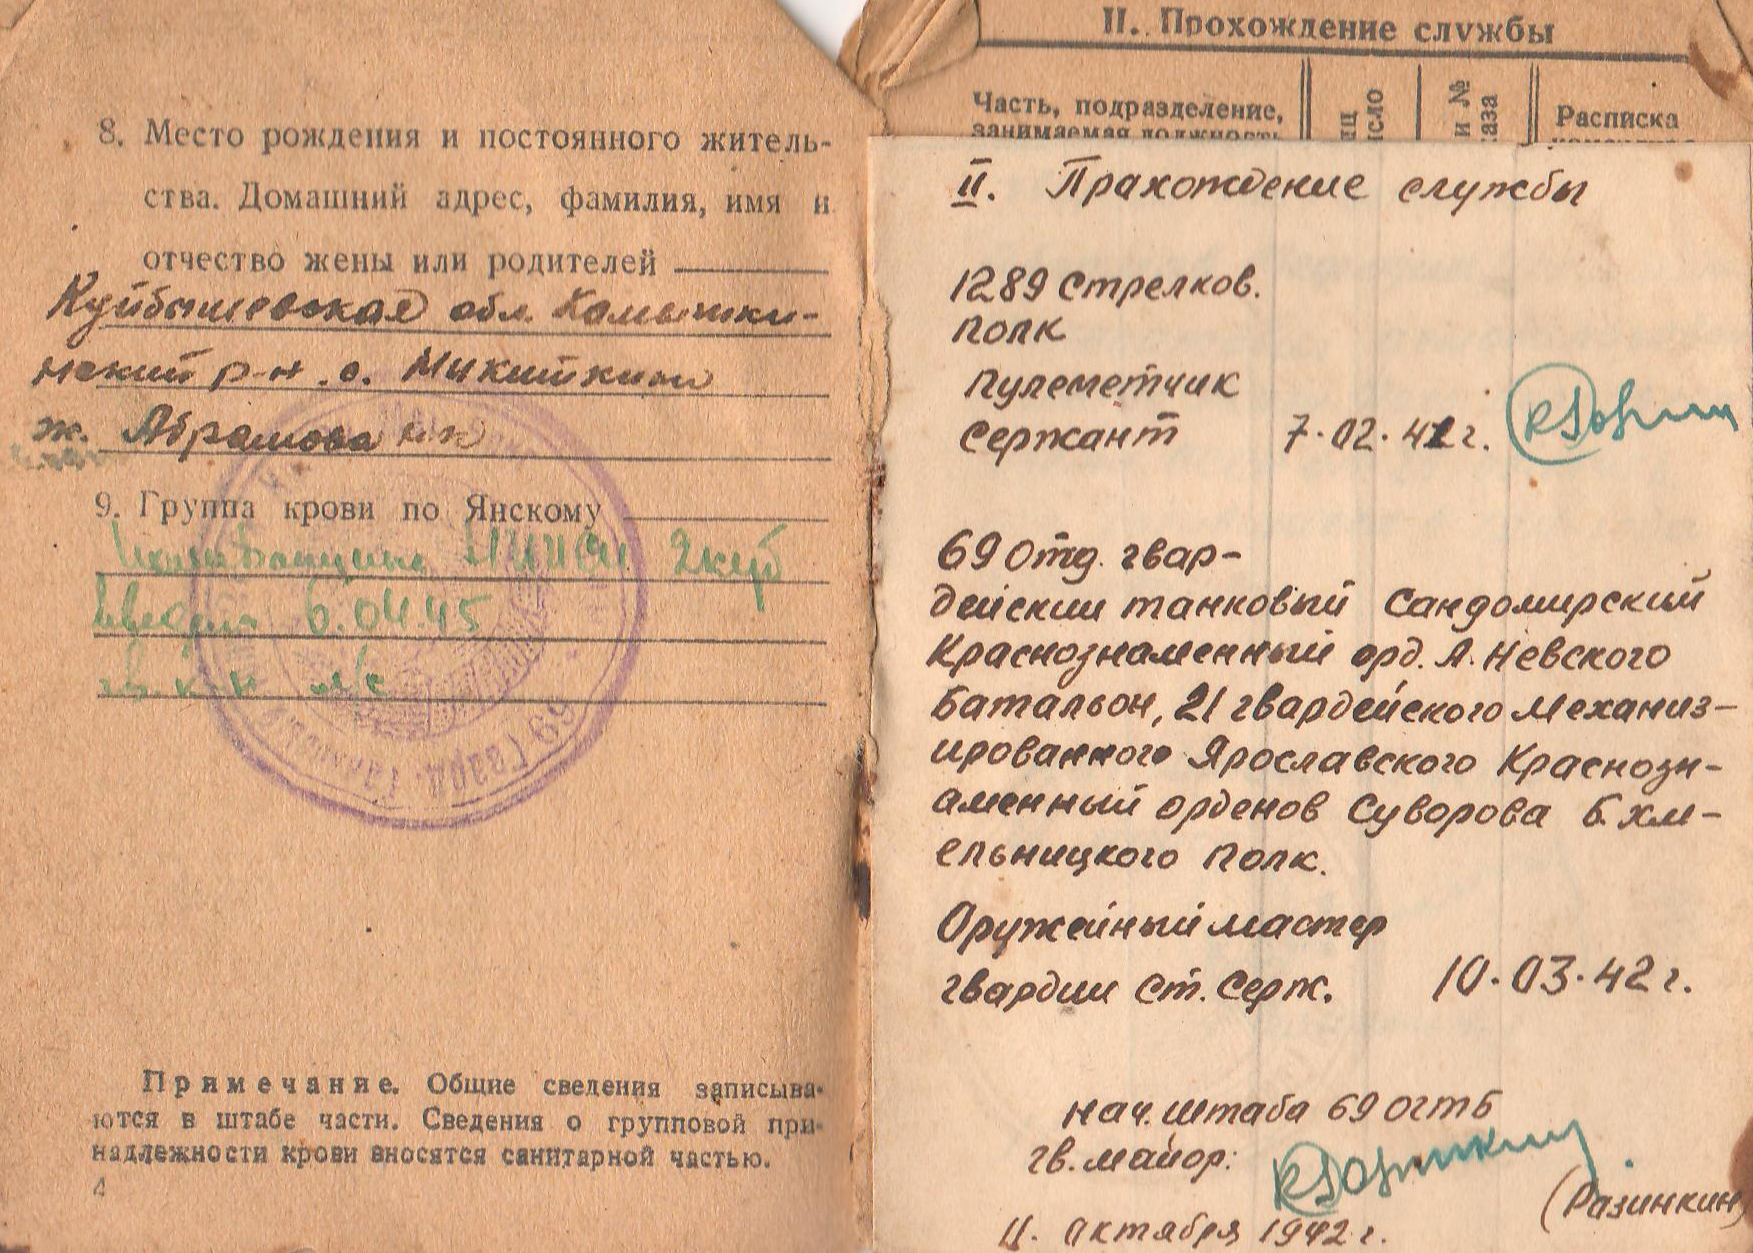 8. Место рождения и постоянного житель-
ства. Домашний адрес, фамилия, имя и
отчество жены или родителей
Куйбышевская обл. Камышки-
нский р-н. с. Микиткино
ж. Абрамова
9. Группа крови по Янскому
2 куб
6.04.45
69 Гвард.
Примечание. Общие сведения записыва-
ются в штабе части. Сведения о групповой при-
надлежности крови вносятся санитарной частью.
4
II. Прохождение службы
Часть, подразделение,
занимаемая должность
Расписка
II. Прахождение службы
1289 Стрелков.
полк
пулеметчик
Сержант 7.02.42 г.
69 Отд. гвар-
дейский танковый Сандомирский
Краснознаменный орд. А. Невского
Батальон, 21 гвардейского Механиз-
ированного Ярославского Краснозн-
аменный орденов Суворова Б. Хм-
ельницкого полк.
Оружейный мастер
гвардии Ст. Серж. 10.03.42 г.
нач. штаба 69 огтб
гв. майор:
(Разинкин)
11. октября 1942 г.